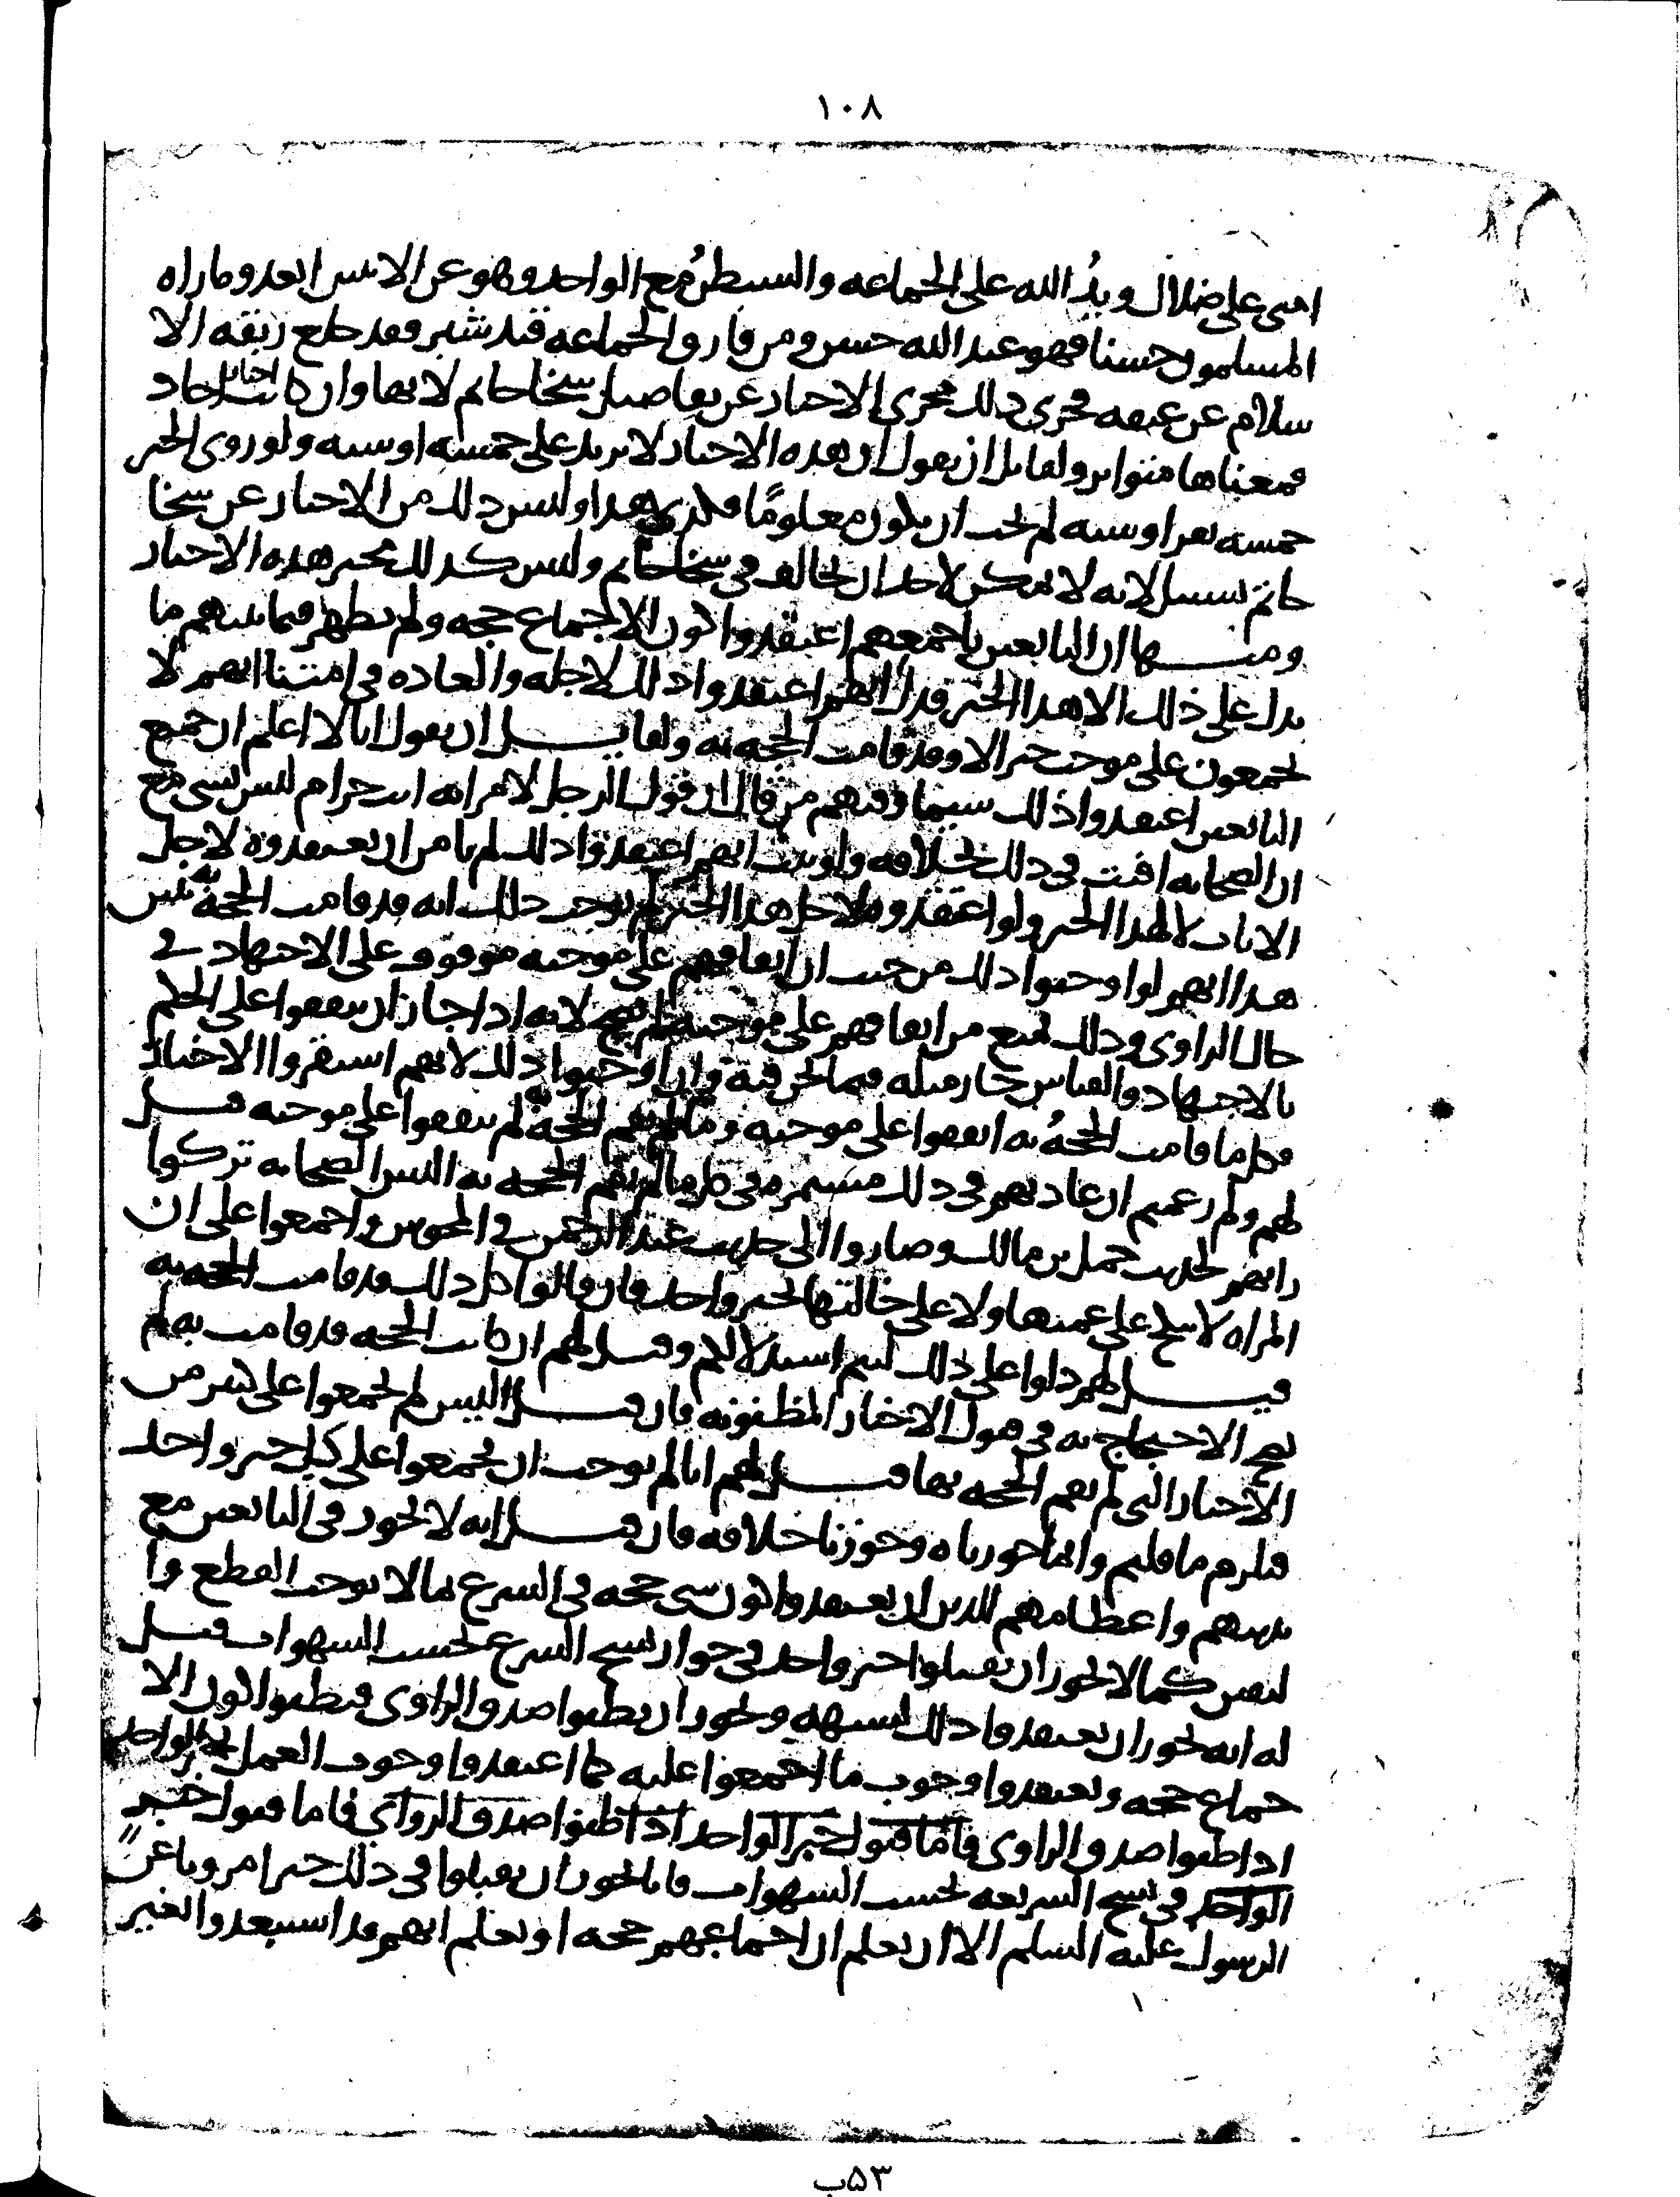 ١٠٨
امتى على ضلال ويدُ الله على الجماعه والشيطن مع الواحد وهو عن الاثنين ابعد وما راه
المسلمون حسنا فهو عند الله حسن ومن فارق الجماعه قيد شبر فقد خلع ربقه الا
سلام عن عنقه فجرى ذلك مجرى الاخبار عن تفاصيل سخا حاتم لانها وان كانت اخبار احاد
فمعناها متواتر ولقايل ان يقول ان هذه الاخبار لا تزيد على خمسه او سته ولو روى الخبر
خمسه نفر او سته لم يجب ان يكون معلومًا فكذى هذا وليس ذلك من الاخبار عن سخا
حاتم بسبيل لانه لا يمكن لاحد ان يخالف فى سخا حاتم وليس كذلك مخبر هذه الاخبار
ومنها ان التابعين باجمعهم اعتقدوا كون الاجماع حجه ولم يظهر فيما بينهم ما
يدل على ذلك الا هذا الخبر فدل انهم اعتقدوا ذلك لاجله والعاده فى امتنا انهم لا
يجمعون على موجب خبر الا وقد قامت الحجه به ولقايل ان يقول انا لا اعلم ان جميع
التابعين اعتقدوا ذلك سيما وفيهم من قال ان قول الرجل لامراته انت حرام ليس بشى مع
ان الصحابه افتت فى ذلك بخلافه ولو ثبت انهم اعتقدوا ذلك لم نامن ان يعتقدوه لاجل
الايات لا لهذا الخبر ولو اعتقدوه لاجل هذا الخبر لم يوجب ذلك انه قد قامت الحجة به يبين
هذا انهم لو اوجبوا ذلك من حيث ان اتفاقهم على موجبه موقوف على الاجتهاد فى
حال الراوى وذلك يمنع من اتفاقهم على موجبه لم يصح لانه اذا جاز ان يتفقوا على الحكم
بالاجتهاد والقياس جاز مثله فيما نحن فيه وان اوجبوا ذلك لانهم استقروا الاخبار
فكل ما قامت الحجةُ به اتفقوا على موجبه وما لم تقم الحجة به لم يتفقوا على موجبه قيل
لهم ولم زعمتم ان عادتهم فى ذلك مستمره فى كل ما لم تقم الحجه به اليس الصحابه تركوا
رايهم لحديث حمل بن مالك وصاروا الى حديث عبد الرحمن فى المجوس واجمعوا على ان
المراه لا تنكح على عمتها ولا على خالتها لخبر واحد فان قالوا كل ذلك قد قامت الحجه به
قيل لهم دلوا على ذلك ليتم استدلالكم وقيل لهم ان كانت الحجه قد قامت به لم
يصح الاحتجاج به فى قبول الاخبار المظنونه فان قيل اليس لم يجمعوا على كثير من
الاخبار التى لم تقم الحجه بها قيل لهم انا لم نوجب ان يجمعوا على كل خبر واحد
فيلزم ما قلتم وانما جوزناه وجوزنا خلافه فان قيل انه لا يجوز فى التابعين مع
تدينهم واعظامهم للدين ان يعتقدوا كون شى حجه فى الشرع بما لا يوجب القطع وا
ليقين كما لا يجوز ان يقبلوا خبر واحد فى جواز نسخ الشرع بحسب الشهوات قيل
له انه يجوز ان يعتقدوا ذلك لشبهه ويجوز ان يظنوا صدق الراوى فيظنوا كون الا
جماع حجه ويعتقدوا وجوب ما اجمعوا عليه كما اعتقدوا وجوب العمل بخبر الواحد
اذا ظنوا صدق الراوى فاما قبول خبر الواحد اذا ظنوا صدق الراوى فاما قبول خبر
الواحد فى نسخ الشريعه بحسب الشهوات فانما يجوز ان يقبلوا فى ذلك خبرا مرويا عن
الرسول عليه السلم الا ان يعلم ان اجماعهم حجه او يعلم انهم قد استبعدوا تغيير
٥٣ب